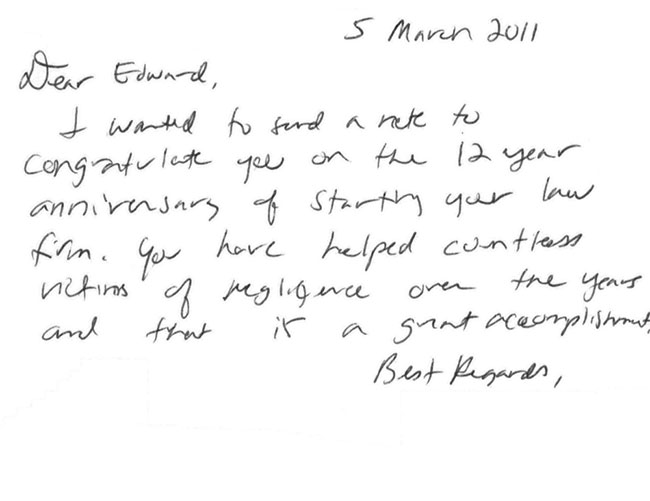 5 March 2011
Dear Edward,
I wanted to send a note to
congratulate you on the 12 year
anniversary of starting your law
firm. You have helped countless
victims of negligence over the years
and that is a great accomplishment.
Best Regards,